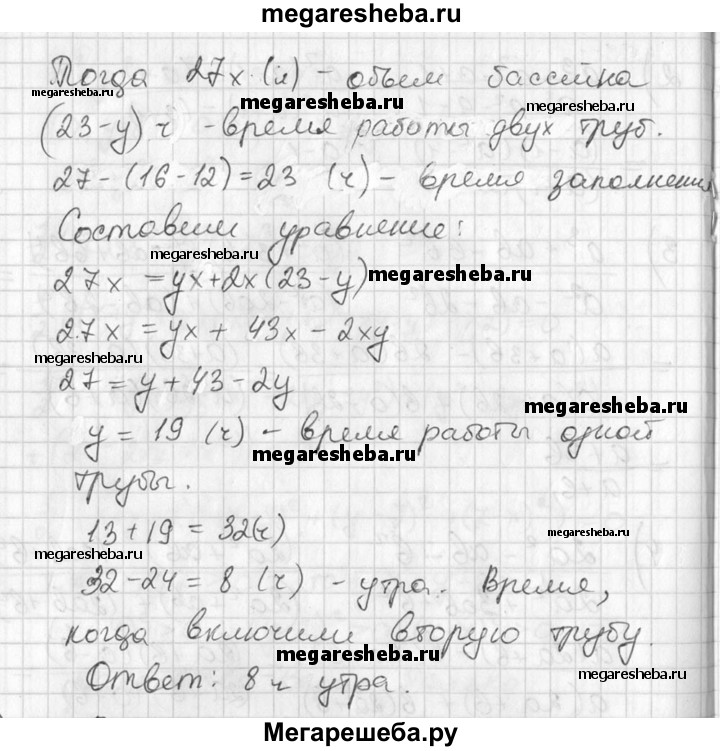 megaresheba.ru
Тогда 27x (л) - объем бассейна
megaresheba.ru megaresheba.ru megaresheba.ru
(23-y) ч - время работы двух труб.
27-(16-12)=23 (ч) - время заполнения
Составим уравнение:
megaresheba.ru
27x = yx+2x(23-y) megaresheba.ru
27x = yx + 43x - 2xy
megaresheba.ru
27 = y + 43 - 2y
megaresheba.ru
y = 19 (ч) - время работы одной
megaresheba.ru
трубы.
13 + 19 = 32(ч)
megaresheba.ru
megaresheba.ru
32-24 = 8 (ч) - утра. Время,
когда включили вторую трубу.
megaresheba.ru megaresheba.ru
Ответ: 8 ч утра.
Мегарешеба.ру